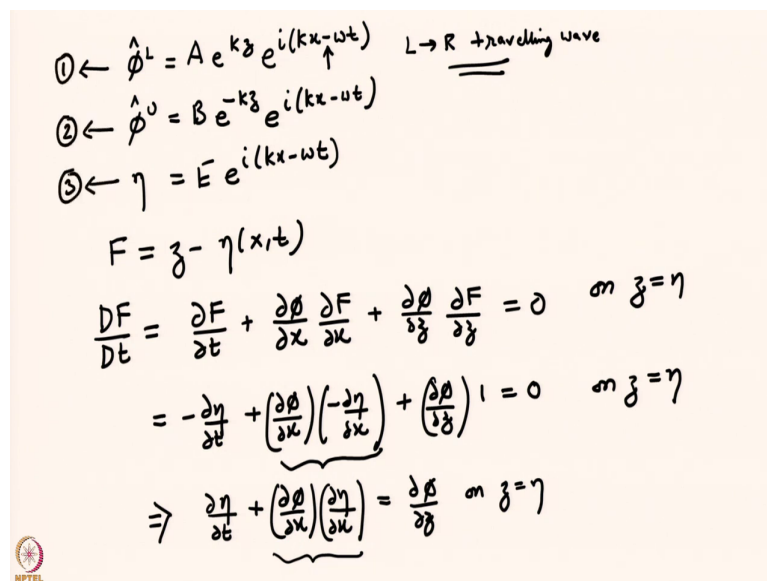 ①← φ̂ᴸ = A e^{kz} e^{i(kx-ωt)} L→R travelling wave
↑
②← φ̂ᵁ = B e^{-kz} e^{i(kx-ωt)}
③← η = E e^{i(kx-ωt)}
F = z - η(x,t)
DF/Dt = ∂F/∂t + ∂φ/∂x ∂F/∂x + ∂φ/∂z ∂F/∂z = 0 on z=η
= -∂η/∂t + (∂φ/∂x)(-∂η/∂x) + (∂φ/∂z) 1 = 0 on z=η
⇒ ∂η/∂t + (∂φ/∂x)(∂η/∂x) = ∂φ/∂z on z=η
NPTEL